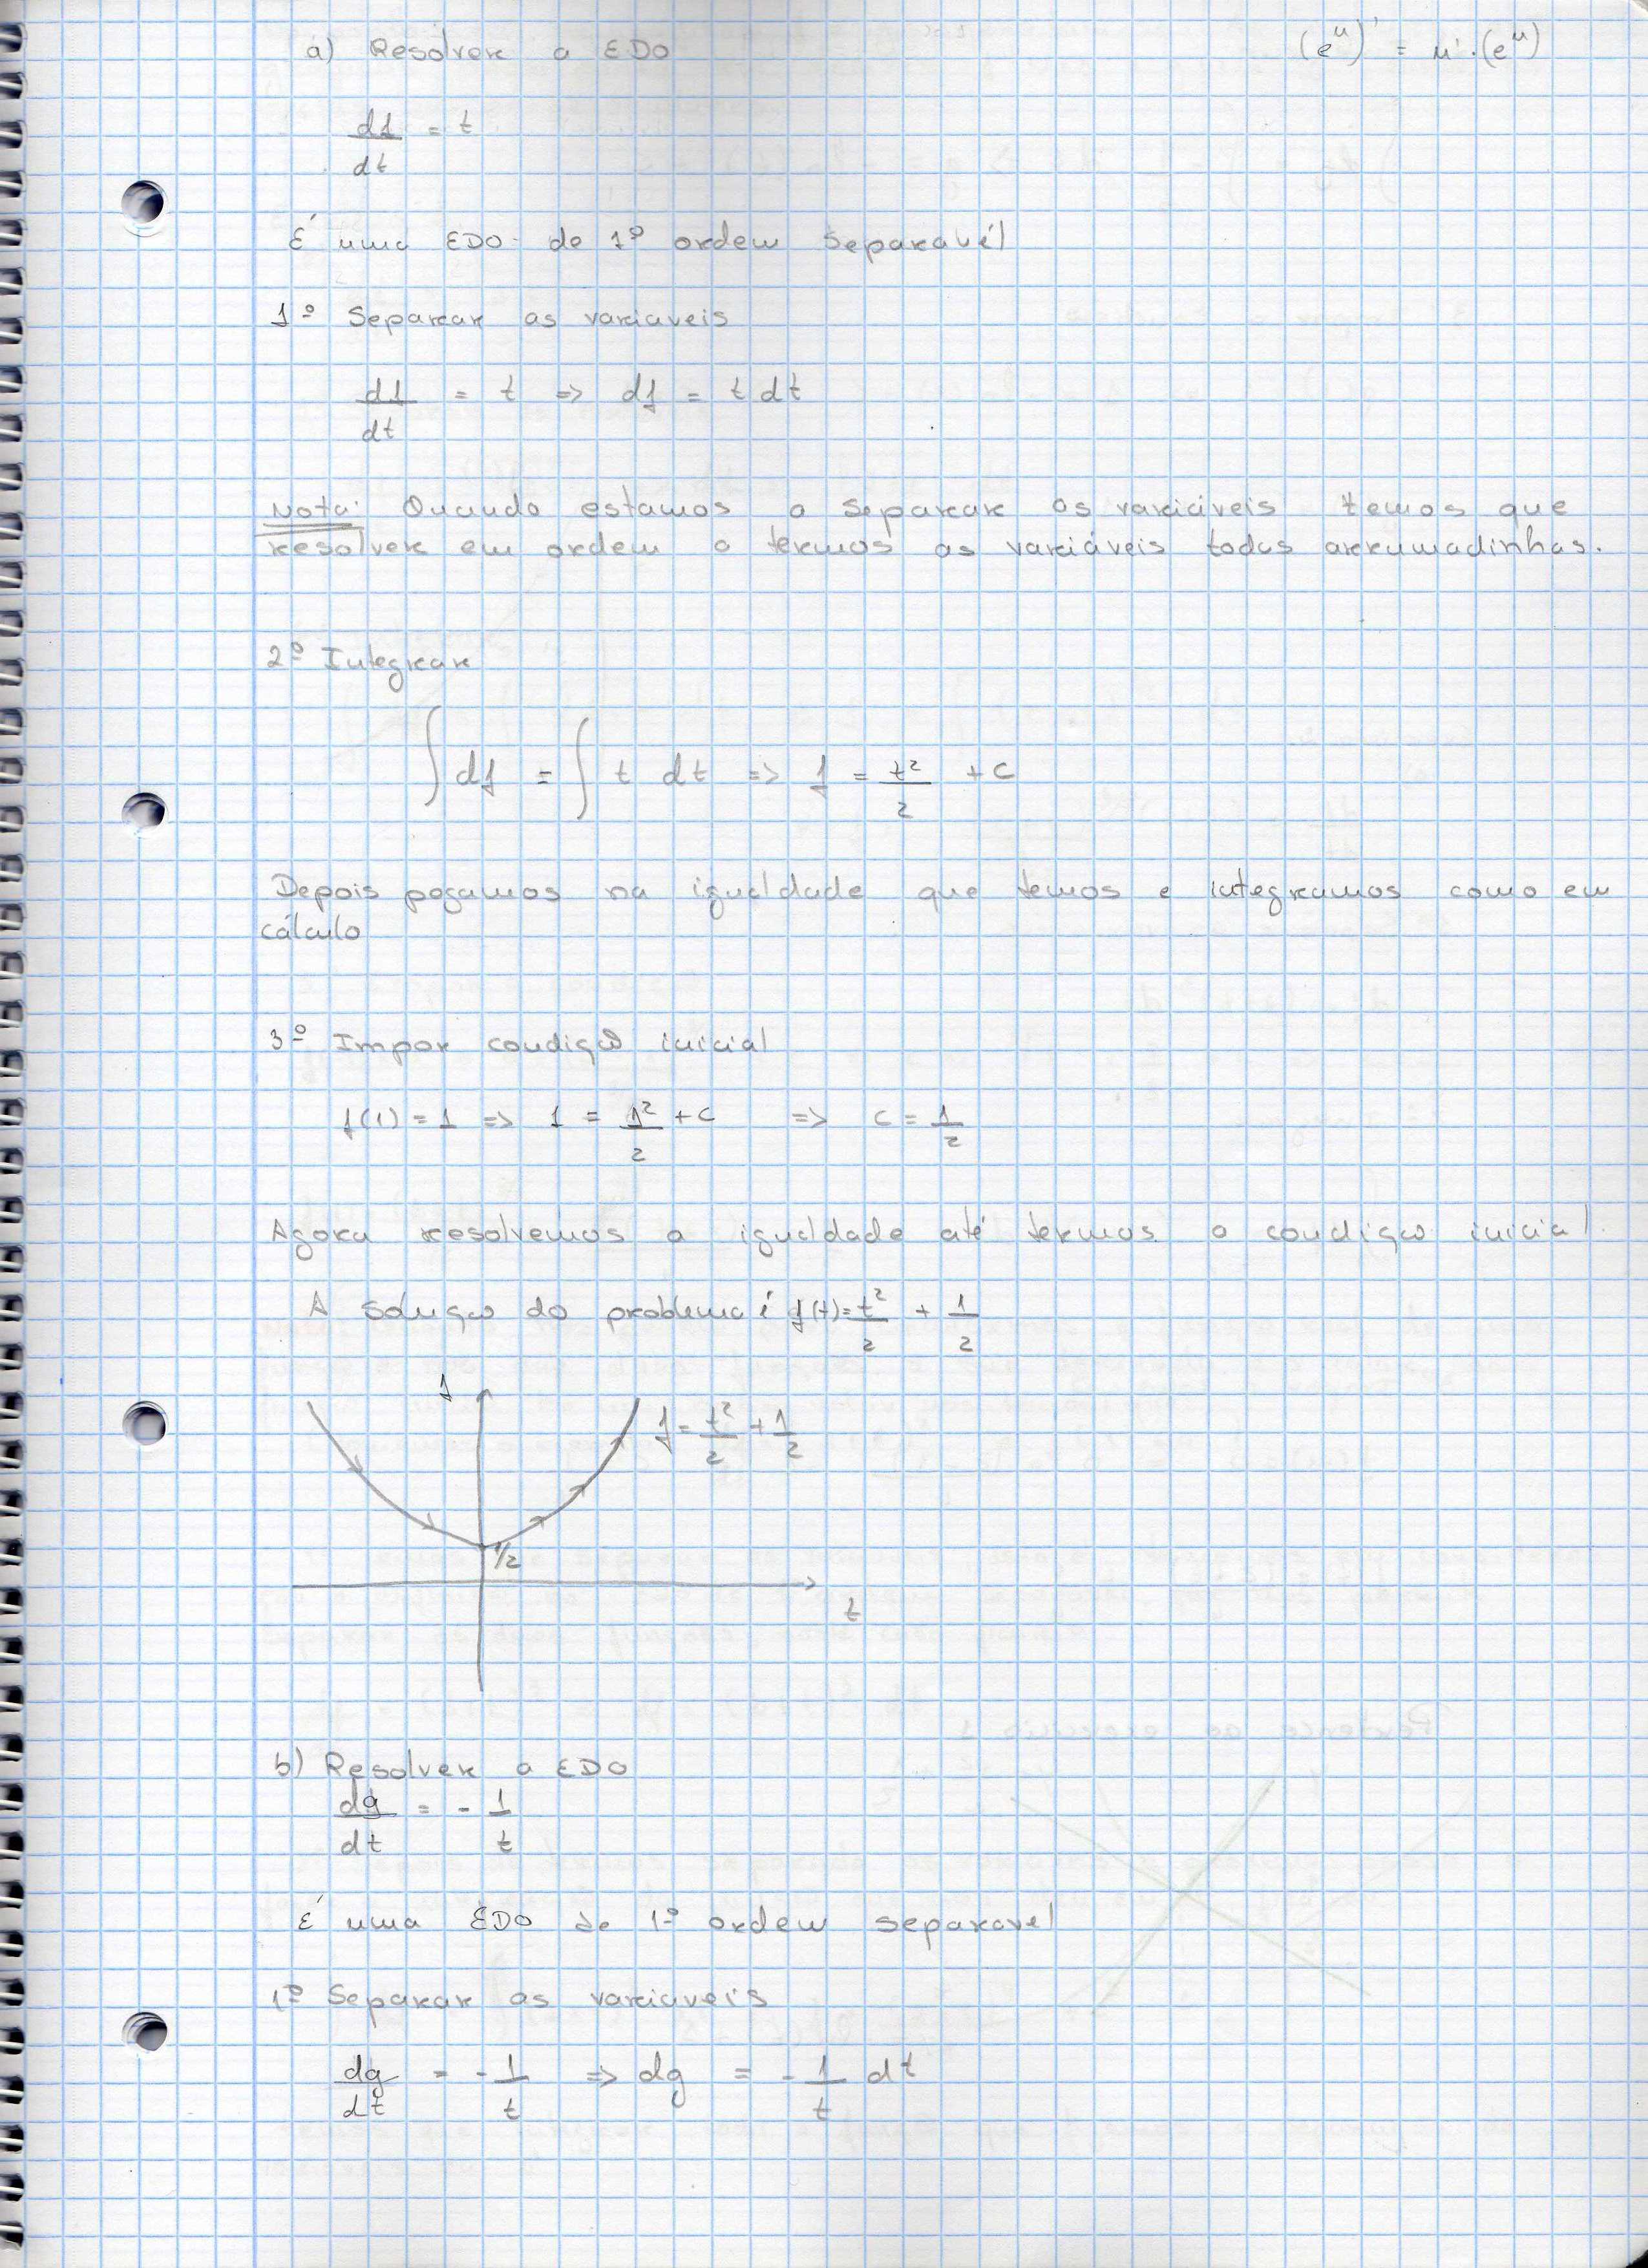 a) Resolver a EDO (e^u)' = u'.(e^u)
df/dt = t
É uma EDO de 1º ordem separavél
1º Separar as variaveis
df/dt = t => df = t dt
Nota: Quando estamos a separar as variáveis temos que
resolver em ordem a termos as variáveis todas arrumadinhas.
2º Integrar
∫ df = ∫ t dt => f = t²/2 + c
Depois pegamos na igualdade que temos e integramos como em
cálculo
3º Impor condição inicial
f(1) = 1 => 1 = 1²/2 + c => c = 1/2
Agora resolvemos a igualdade até termos a condição inicial.
A solução do problema é f(t) = t²/2 + 1/2
f
f = t²/2 + 1/2
1/2
t
b) Resolver a EDO
dg/dt = - 1/t
É uma EDO de 1º ordem separavel
1º Separar as variaveis
dg/dt = - 1/t => dg = - 1/t dt